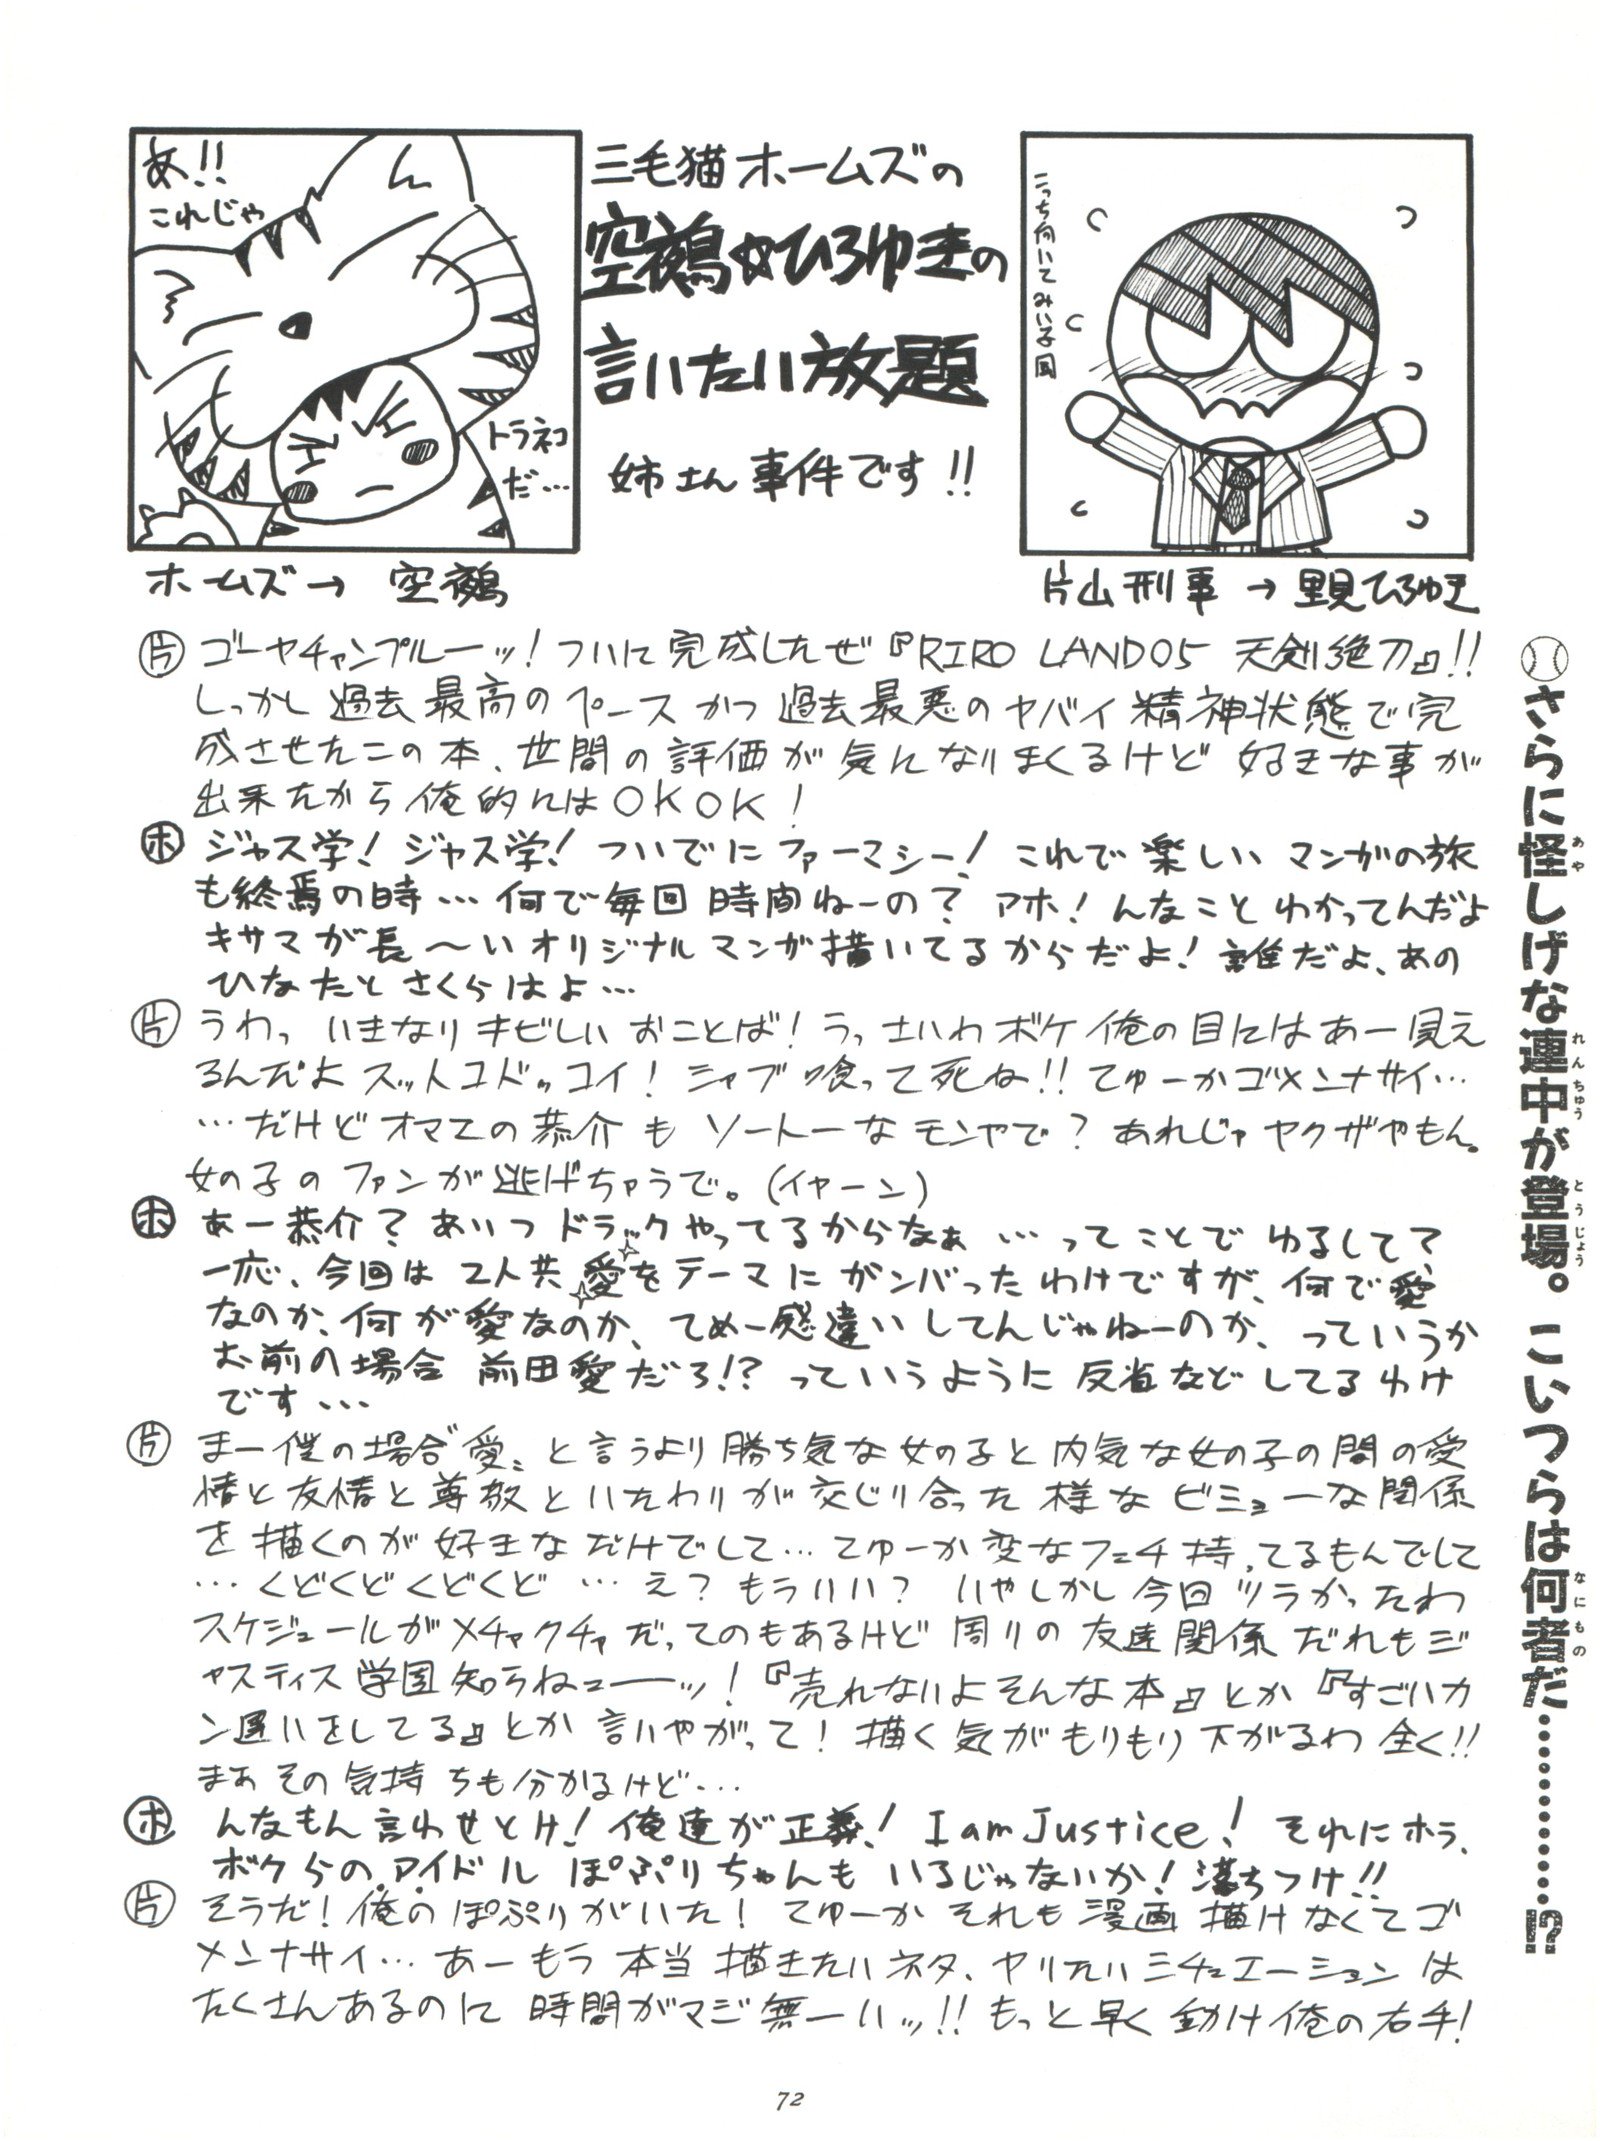 あ!!
これじゃ
トラネコ
だ…
三毛猫ホームズの
空鵺☆ひろゆきの
言いたい放題
姉さん事件です!!
こっち向いてみい子風
ホームズ→ 空鵺
片山刑事→里見ひろゆき
㊋ ゴーヤチャンプルーッ!ついに完成したぜ『RIRO LAND05 天剣絶刀』!!
しっかし過去最高のペースかつ過去最悪のヤバイ精神状態で完
成させたこの本、世間の評価が気になりまくるけど好きな事が
出来たから俺的にはOKOK!
ホ ジャス学!ジャス学!ついでにファーマシー!これで楽しいマンガの旅
も終焉の時…何で毎回時間ねーの?アホ!んなことわかってんだよ
キサマが長〜いオリジナルマンガ描いてるからだよ!誰だよ、あの
ひなたとさくらはよ…
片 うわっ いきなりキビしいおことば!うっさいわボケ俺の目にはあー見え
るんだよスットコドッコイ!シャブ喰って死ね!!てゅーかゴメンナサイ…
…だけどオマエの恭介もソートーなモンやで?あれじゃヤクザやもん。
女の子のファンが逃げちゃうで。(イヤーン)
ホ あー恭介?あいつドラックやってるからなぁ…ってことでゆるしてて
一応、今回は2人共愛をテーマにガンバったわけですが、何で愛
なのか、何が愛なのか、てめー感違いしてんじゃねーのか、っていうか
お前の場合 前田愛だろ!?っていうように反省などしてるわけ
です…
片 まー僕の場合〝愛〟と言うより勝ち気な女の子と内気な女の子の間の愛
情と友情と尊敬といたわりが交じり合った様なビミョーな関係
を描くのが好きなだけでして…てゅーか変なフェチ持ってるもんでして
…くどくどくどくど…え?もういい?いやしかし今回ツラかったわ
スケジュールがメチャクチャだってのもあるけど周りの友達関係だれもジ
ャスティス学園知らねェーーッ!『売れないよそんな本』とか『すごいカ
ン違いをしてる』とか言いやがって!描く気がもりもり下がるわ全く!!
まぁその気持ちも分かるけど…
ホ んなもん言わせとけ!俺達が正義!I am Justice!それにホラ、
ボクらのアイドルぽぷりちゃんもいるじゃないか!落ちつけ!!
片 そうだ!俺のぽぷりがいた!てゅーかそれも漫画描けなくてゴ
メンナサイ…あーもう本当描きたいネタ、ヤりたいシチュエーションは
たくさんあるのに時間がマジ無ーいッ!!もっと早く動け俺の右手!
さらに怪しげな連中が登場。こいつらは何者だ……………!?
あや
れんちゅう
とうじょう
なにもの
72